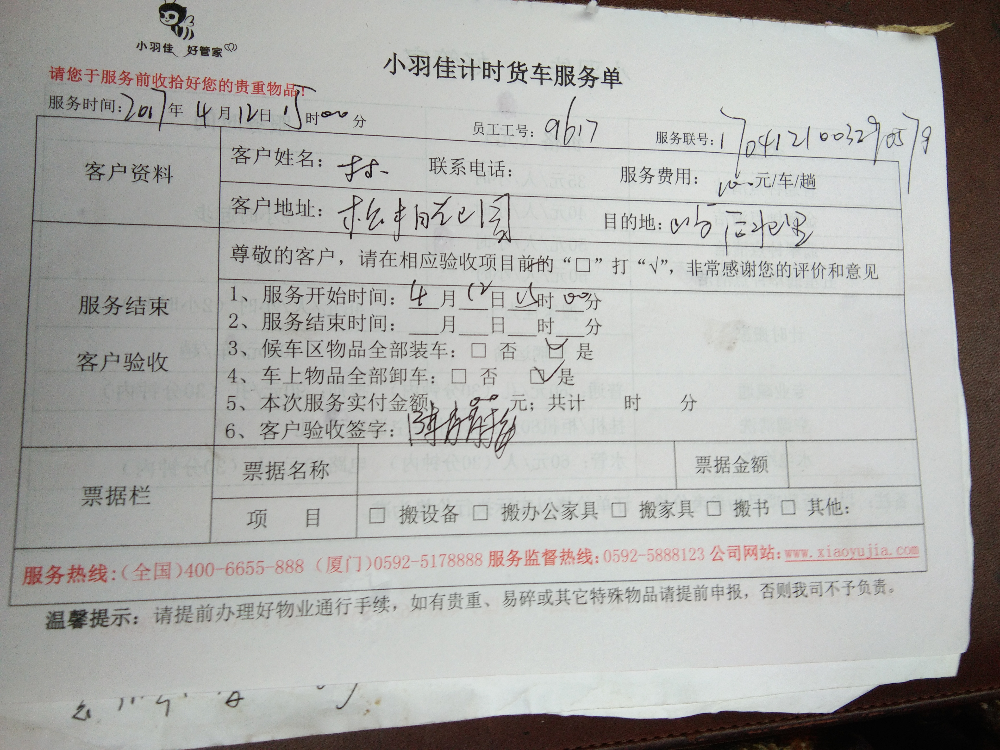 小羽佳 好管家
小羽佳计时货车服务单
请您于服务前收拾好您的贵重物品!
服务时间:2017年4月12日15时00分 员工工号:9617 服务联号:
客户资料
客户姓名: 林 联系电话: 服务费用: 元/车/趟
客户地址: 目的地:
服务结束
客户验收
尊敬的客户,请在相应验收项目前的“□”打“√”,非常感谢您的评价和意见
1、服务开始时间:4月12日15时00分
2、服务结束时间:___月___日___时___分
3、候车区物品全部装车:□ 否 ☑ 是
4、车上物品全部卸车:□ 否 ☑ 是
5、本次服务实付金额: 元;共计 时 分
6、客户验收签字:
票据栏
票据名称 票据金额
项 目 □ 搬设备 □ 搬办公家具 □ 搬家具 □ 搬书 □ 其他:
服务热线:(全国)400-6655-888 (厦门)0592-5178888 服务监督热线:0592-5888123 公司网站:www.xiaoyujia.com
温馨提示:请提前办理好物业通行手续,如有贵重、易碎或其它特殊物品请提前申报,否则我司不予负责。